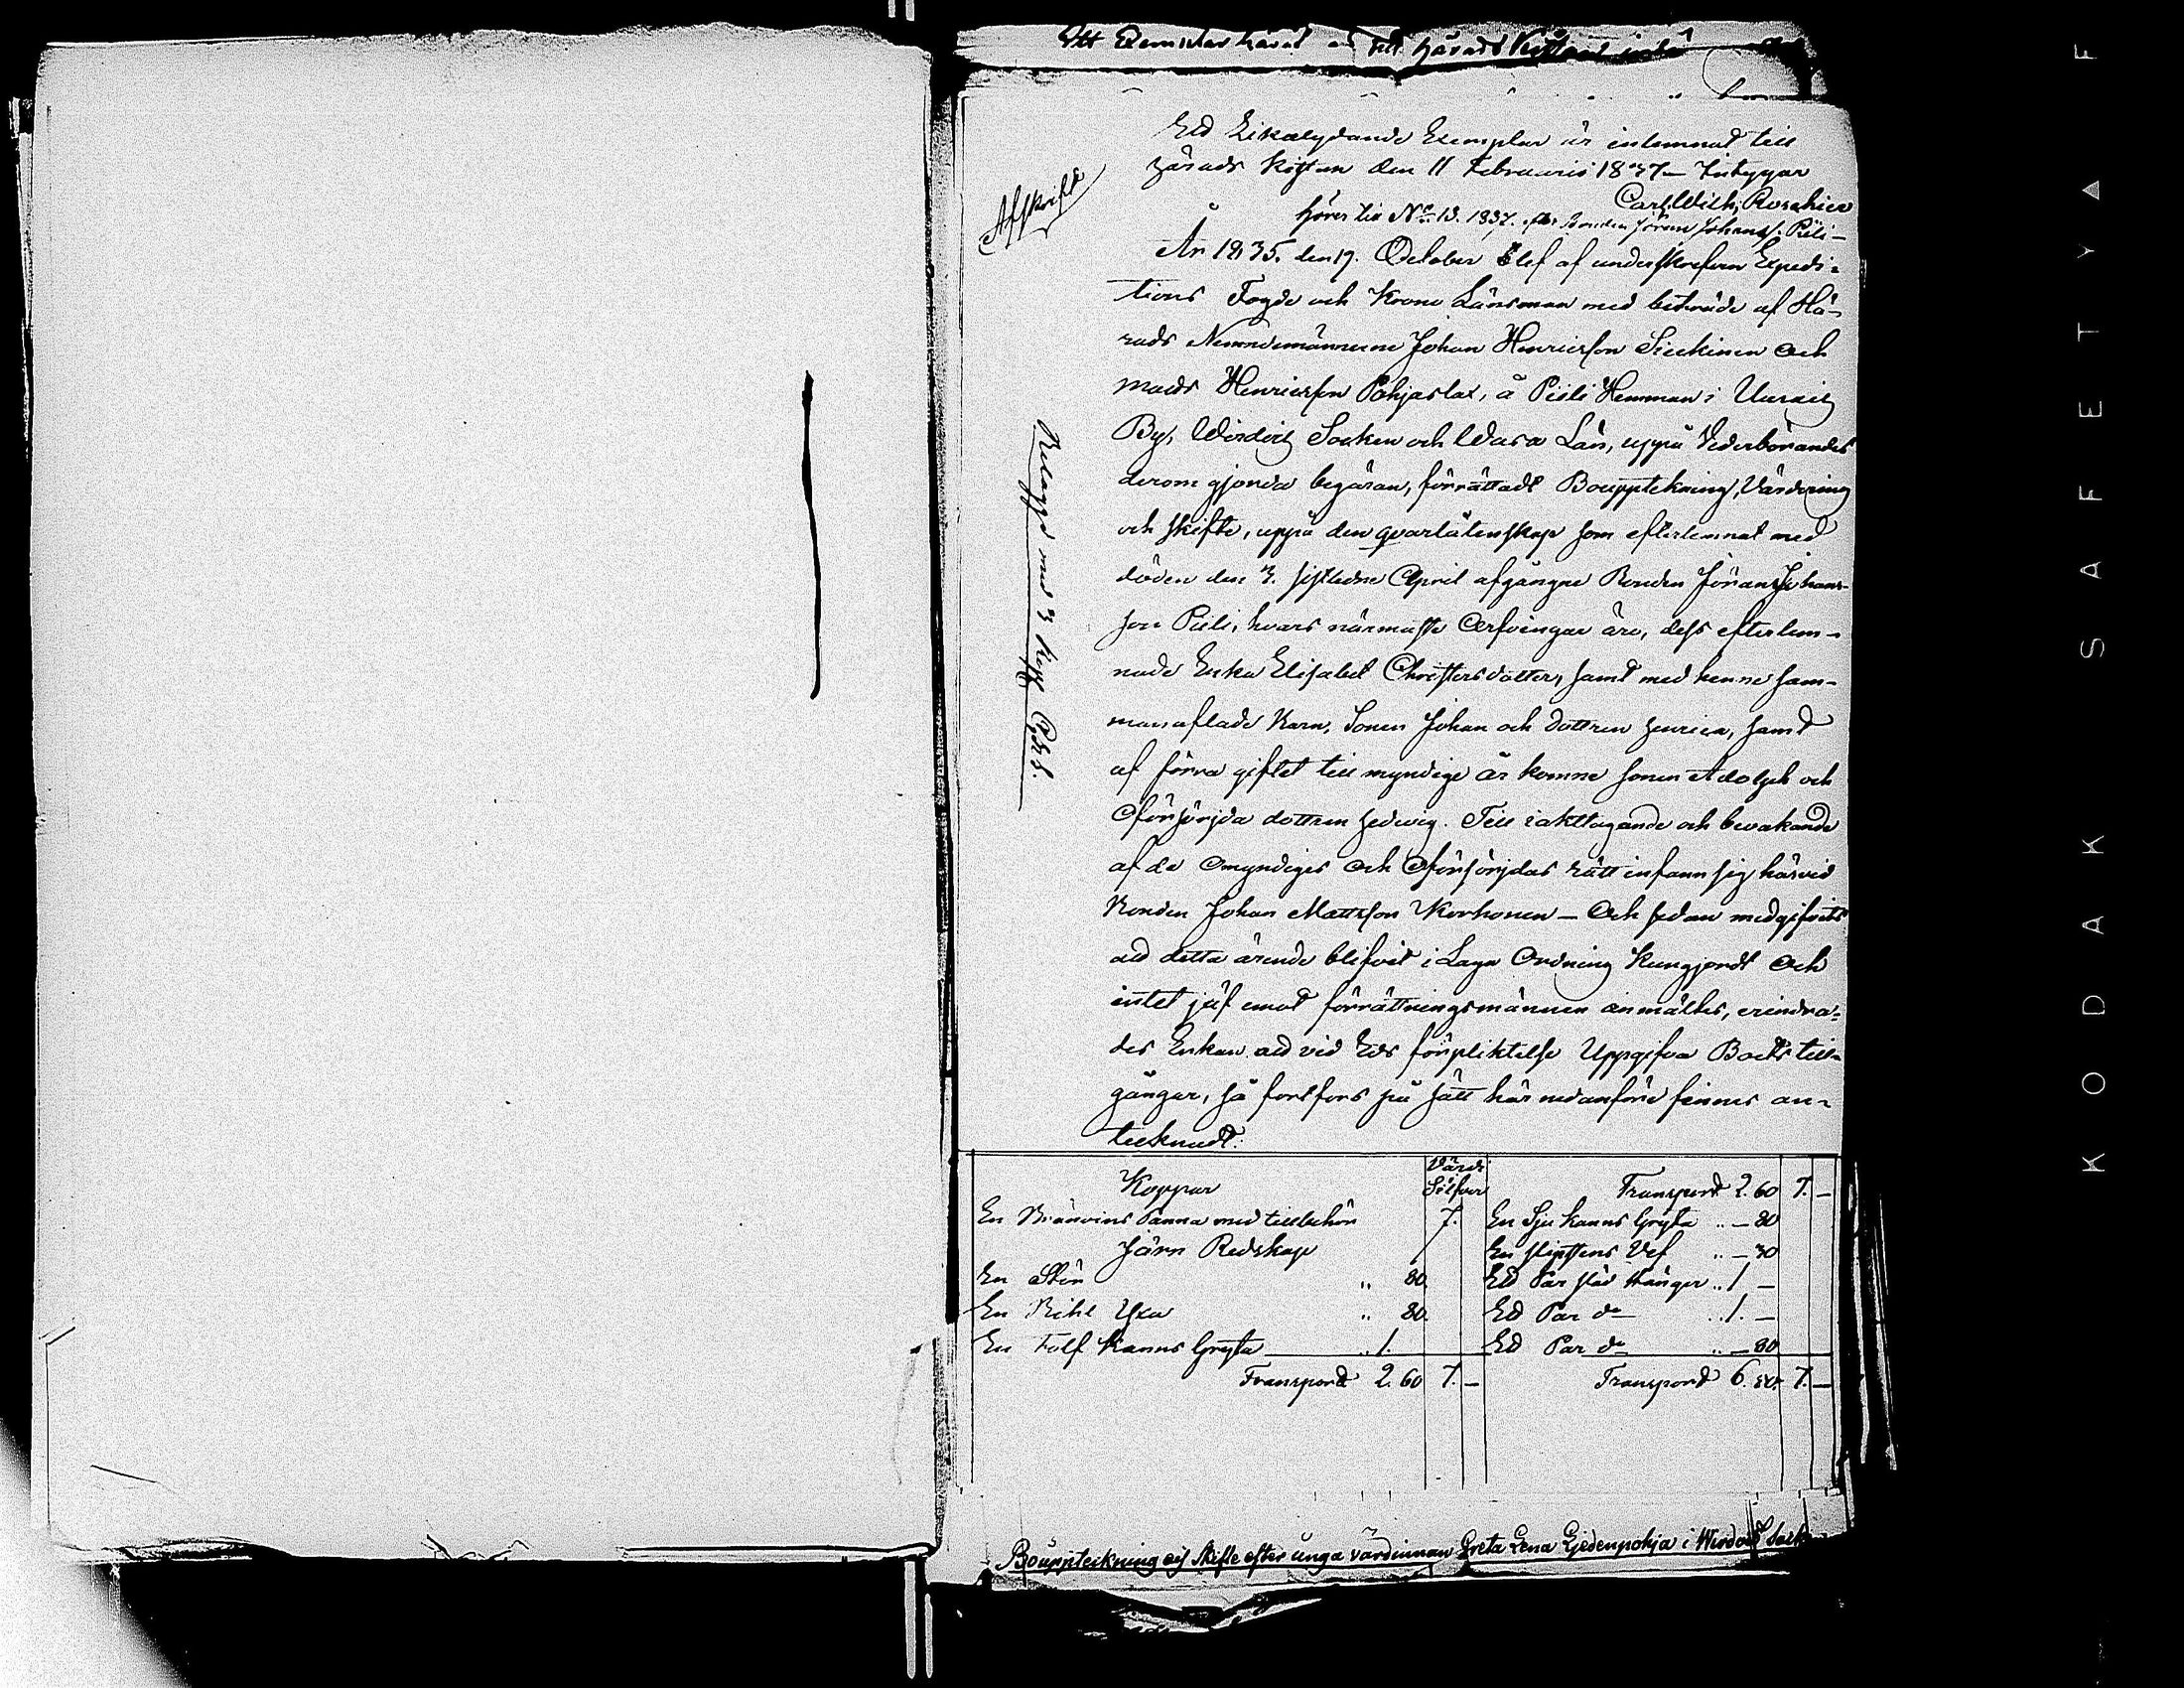 Ett Exemplar härat till Härads Kistan
Etd Likalydande Exemplar är inlemnat till
Härads Kistan den 11 Februari 1837 — Intygar
Carl Wilh:
Afskrift
hörer till No 13. 1837. efter Bonden Jöran Johans: Piili —
År 1835. den 19. October blef af underskrefven Expedi-
tions Fogde och Krono Länsman med biträde af Hä-
rads Nemndemännerne Johan Henricsson Siekinen och
Mads Henricsson Pohjaslax, å Piili Hemman i Uurais
By, Wirdois Socken och Wasa Län, uppå Vederbörandes
derom gjorda begäran, förrättadt Bouppteckning, Värdering
och skifte, uppå den qvarlåtenskap som efterlemnat med
döden den 3. sistledne April afgångne Bonden Jöran Johans-
son Piili, hvars närmaste Arfvingar äro, dess efterlem-
nade Enka Elisabet Christersdotter, samt med henne sam-
manaflade Barn, Sonen Johan och dottren Henrica, samt
af förra giftet till myndige år komne sonen Adolph och
Oförsörjda dottren Hedvig. Till iakttagande och bevakande
af de Omyndiges och Oförsörjdas rätt infann sig härvid
Bonden Johan Mattsson Korhonen — Och sedan medgifvits
ad detta ärende blifvit i Laga Ordning Kungjordt och
intet jäf emot förrättningsmännen anmältes, erindra-
des Enkan ad vid Eds förpliktelse Uppgifva Boets till-
gångar, så fortfors på sätt här nedanföre finnes an-
tecknadt:
Belagge med 3 Kopk Ch. S.
Koppar
Värde Silfver
En Bränvins Panna med tillbehör 7.
Järn Redskap
En Stör „ 80.
En Bihl Yxa „ 80.
En Tolf Kanns Gryta „ 1.
Transport 2. 60 7. —
Transport 2. 60 7. —
En Sju Kanns Gryta „ — 80
En slipstens Vef „ — 30
Etd Par städ „ 1. —
Etd Par do „ 1. —
Etd Par do „ — 80
Transport 6. 50. 7. —
Bouppteckning och Skifte efter unga värdinnan Greta Lena Ejedenpohja i Wirdois Sock